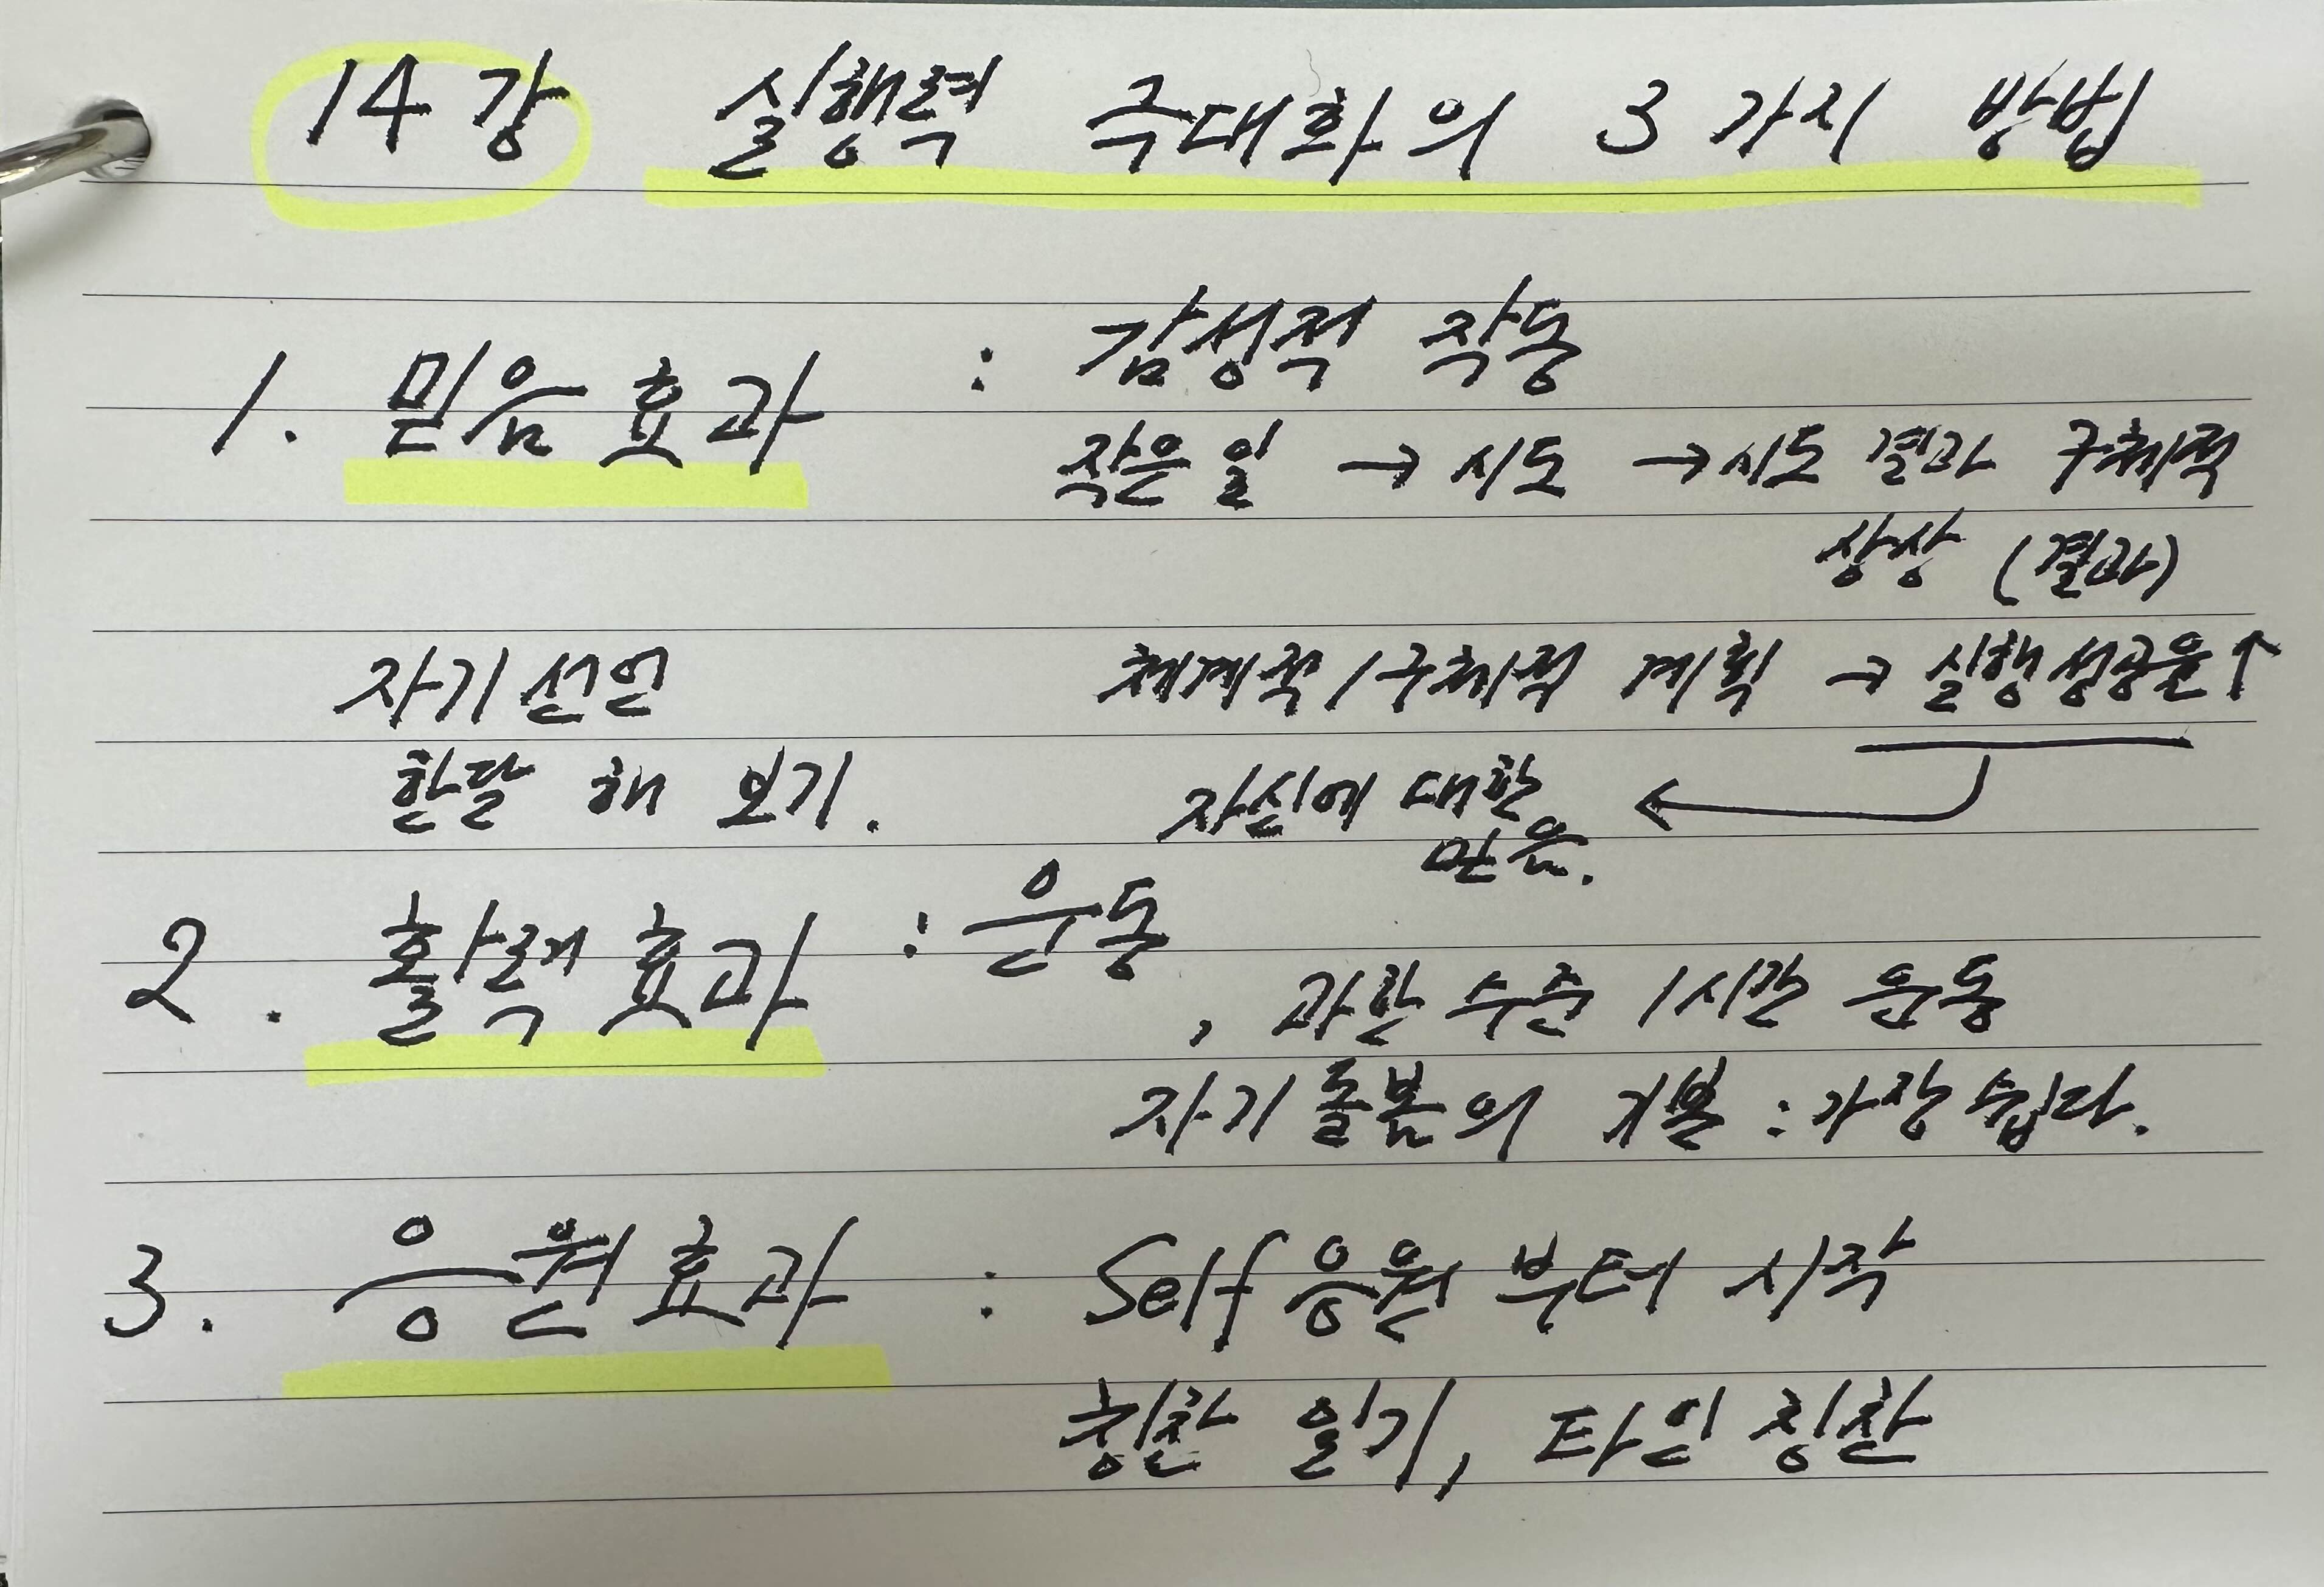 14강 실행력 극대화의 3가지 방법
1. 믿음효과 : 감성적 작동
작은 일 → 시도 → 시도 결과 구체적
상상 (결과)
자기선언 체계적/구체적 계획 → 실행성공율↑
한달 해 보기. 자신에 대한
믿음.
2. 활력효과 : 운동
, 과한 수준 1시간 운동
자기돌봄의 기본 : 가장 쉽다.
3. 응원효과 : Self 응원부터 시작
칭찬 일기, 타인 칭찬